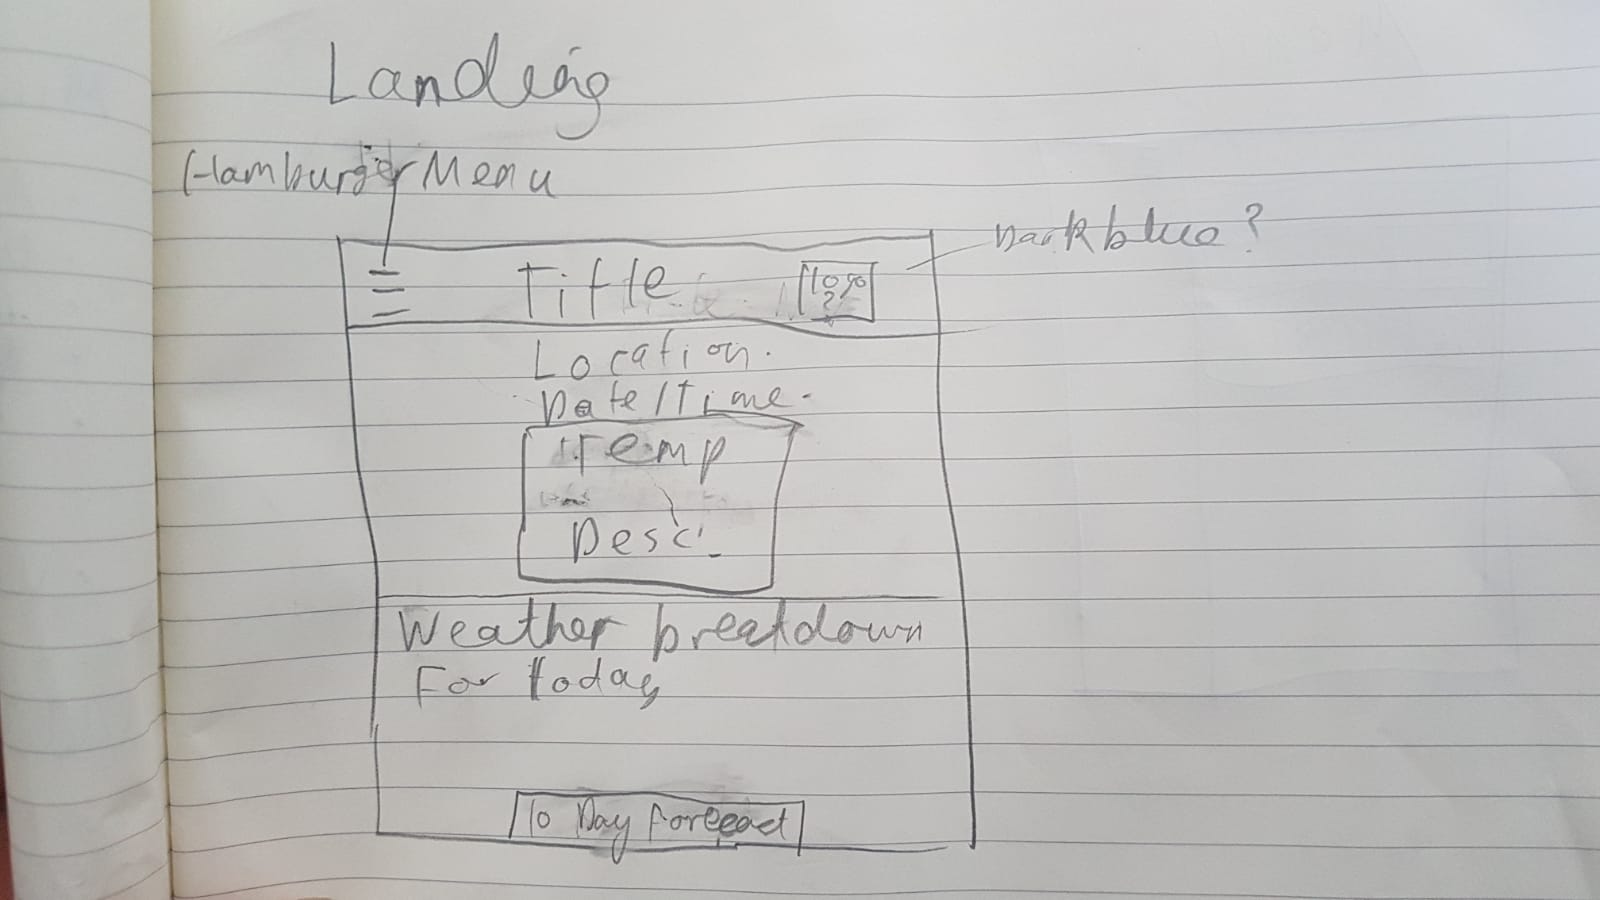 Landing
Hamburger Menu
Dark blue?
Title
logo
?
Location.
Date/Time.
Temp
Desc.
Weather breakdown
For today
10 Day Forecast